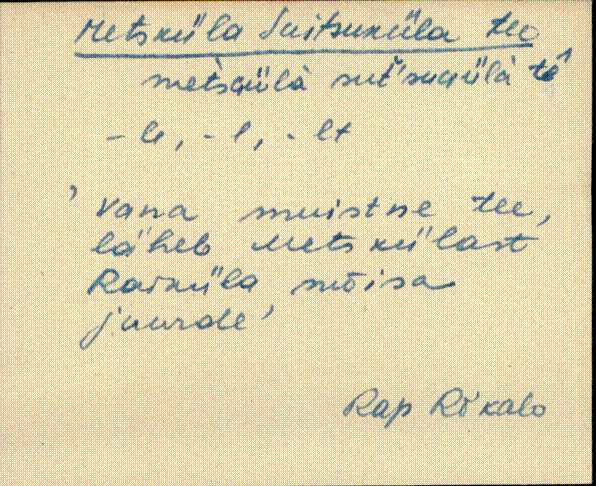 Metsküla Suitsuküla tee
metsqülà suìtsuqülà tê
- le, - l, - lt
' Vana muistne tee,
läheb Metskülast
Raiküla mõisa
juurde '
Rap Rõkalo